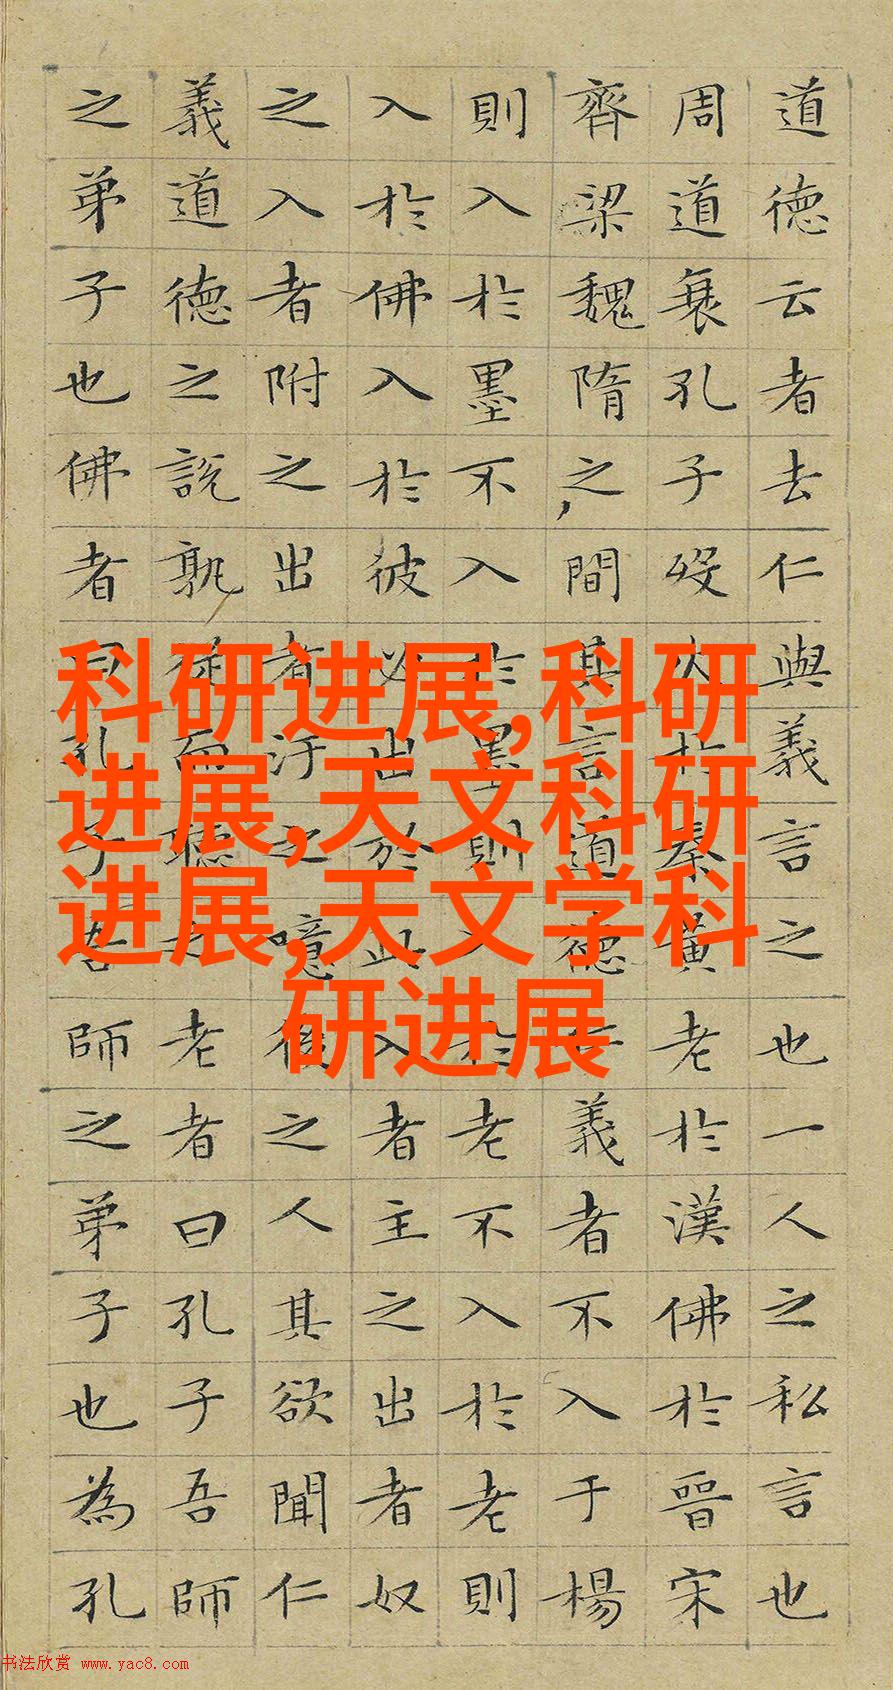 道德云者去仁與義言之也一人之私言也
周道衰孔子歿火於秦黃老於漢佛於晉宋
齊梁魏隋之間其言道德仁義者不入于楊
則入於墨不入於墨則入於老不入於老則
入於佛入於彼必出於此入者主之出者奴
之入者附之出者汙之噫後之人其欲聞仁
義道德之說孰從而聽之老者曰孔子吾師
之弟子也佛者曰孔子吾師之弟子也為孔
科研进展,科研
进展,天文科研
进展,天文学科
研进展
书法欣赏 www.yac8.com